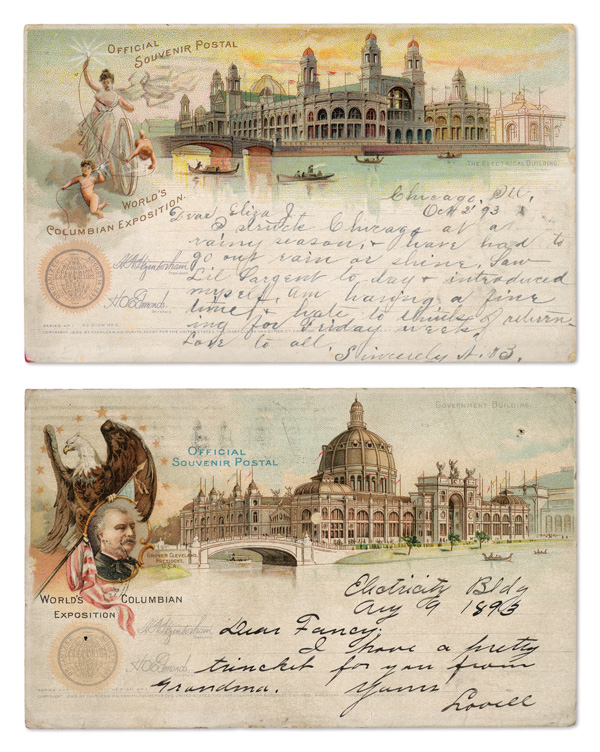 OFFICIAL
SOUVENIR POSTAL
THE ELECTRICAL BUILDING.
WORLD'S
COLUMBIAN EXPOSITION.
Chicago, Ill,
Oct 2' 93
Dear Eliza J.
I struck Chicago at a
rainy season, & have had to
go out rain or shine. Saw
Lil Sargent to day & introduced
myself, am having a fine
time & hate to think of return-
ing for Friday week,
Love to all,
Sincerely A. B.
GOVERNMENT BUILDING.
OFFICIAL
SOUVENIR POSTAL
GROVER CLEVELAND
PRESIDENT,
U.S.A.
WORLD'S COLUMBIAN
EXPOSITION
Electricity Bldg
Aug 9 1893
Dear Fancy,
I have a pretty
trincket for you from
Grandma. Yours
Lovell